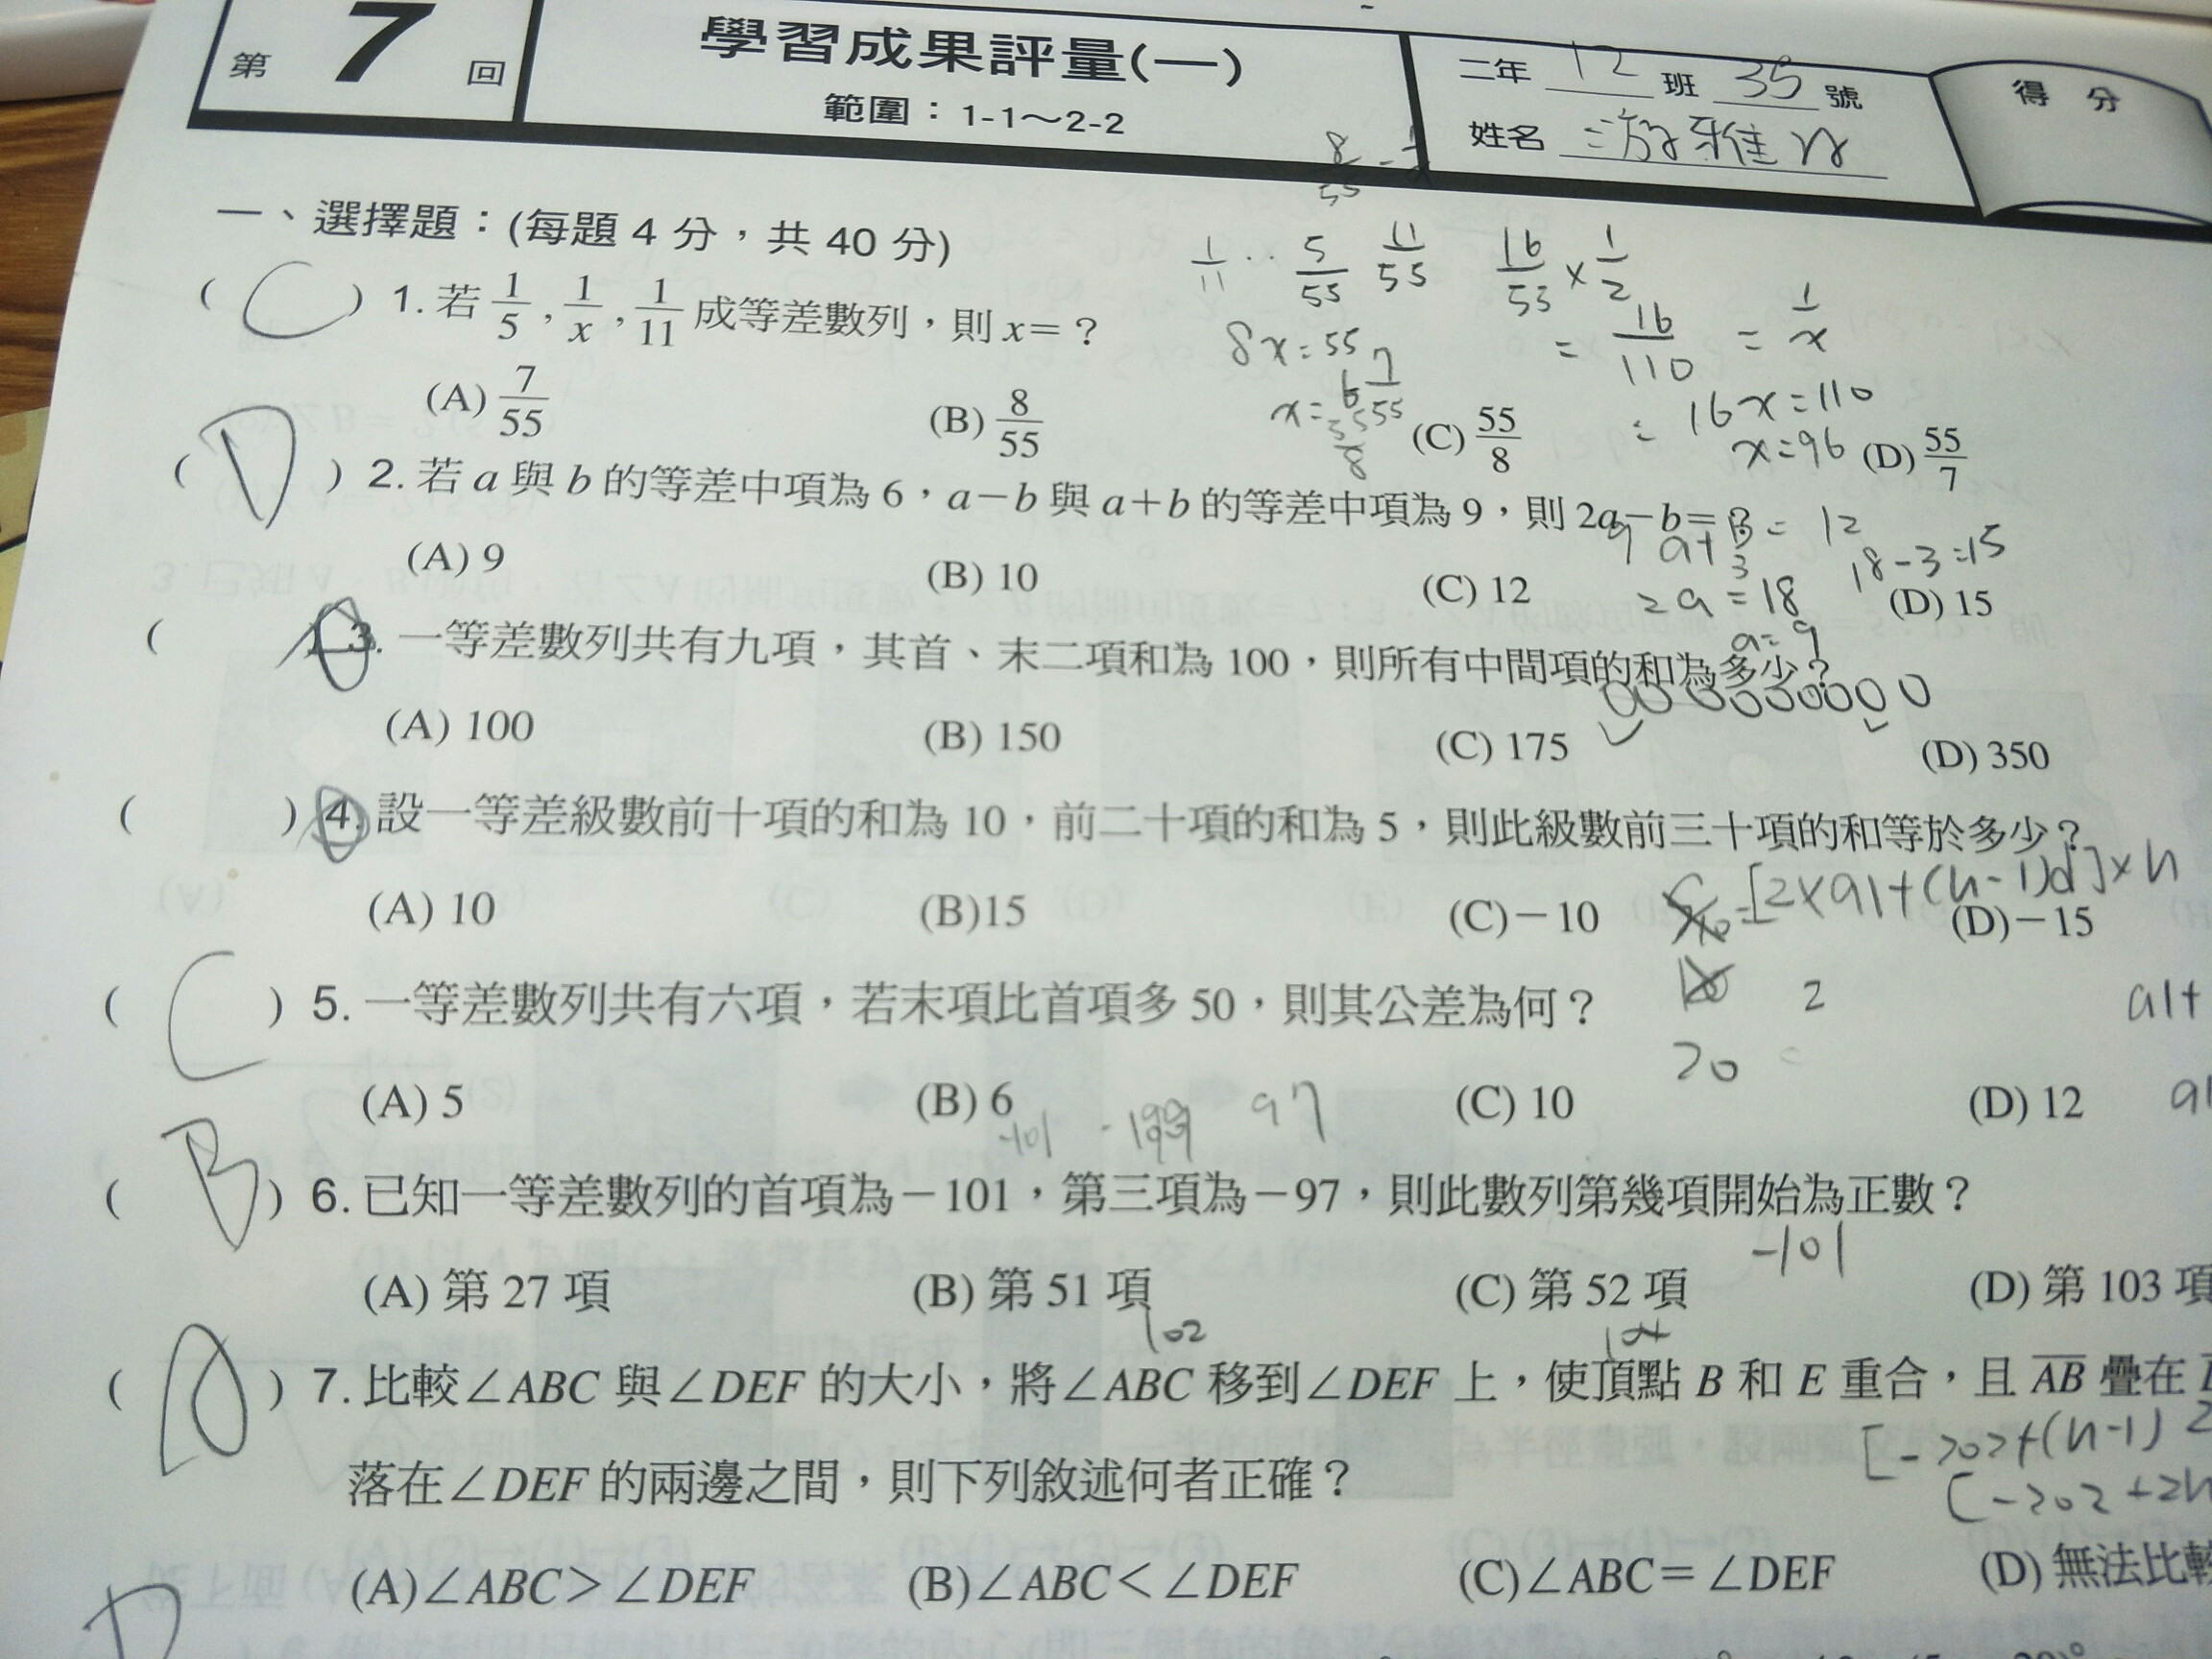 第 7 回
學習成果評量(一)
範圍：1-1～2-2
二年 12 班 35 號
姓名
得 分
一、選擇題：(每題 4 分，共 40 分)
( C ) 1. 若 1/5 , 1/x , 1/11 成等差數列，則 x=？
(A) 7/55 (B) 8/55 (C) 55/8 (D) 55/7
1/11 5/55 11/55 16/55 × 1/2
= 16/110 = 1/x
8x=55
= 16x=110
x=96
( D ) 2. 若 a 與 b 的等差中項為 6，a－b 與 a＋b 的等差中項為 9，則 2a－b=
(A) 9 (B) 10 (C) 12 (D) 15
9 a+B= 12
3
18-3=15
2a=18
a=9
( ) 3. 一等差數列共有九項，其首、末二項和為 100，則所有中間項的和為多少？
(A) 100 (B) 150 (C) 175 (D) 350
( ) 4. 設一等差級數前十項的和為 10，前二十項的和為 5，則此級數前三十項的和等於多少？
(A) 10 (B)15 (C)－10 (D)－15
=[2×a1+(n-1)d]×n
2
20
a1+
( C ) 5. 一等差數列共有六項，若末項比首項多 50，則其公差為何？
(A) 5 (B) 6 (C) 10 (D) 12
-101 97
( B ) 6. 已知一等差數列的首項為－101，第三項為－97，則此數列第幾項開始為正數？
-101
(A) 第 27 項 (B) 第 51 項 (C) 第 52 項 (D) 第 103 項
102 104
( ) 7. 比較∠ABC 與∠DEF 的大小，將∠ABC 移到∠DEF 上，使頂點 B 和 E 重合，且 AB 疊在
[-202+(n-1) 2
[-202+2n
落在∠DEF 的兩邊之間，則下列敘述何者正確？
(A)∠ABC＞∠DEF (B)∠ABC＜∠DEF (C)∠ABC＝∠DEF (D) 無法比較
D